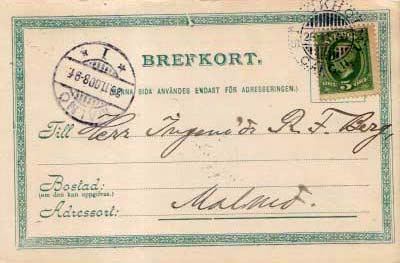 BREFKORT.
(DENNA SIDA ANVÄNDES ENDAST FÖR ADRESSERINGEN.)
5
1
Till Herr Ingeniör R. F. Berg,
Bostad:
(om den kan uppgifvas.)
Adressort: